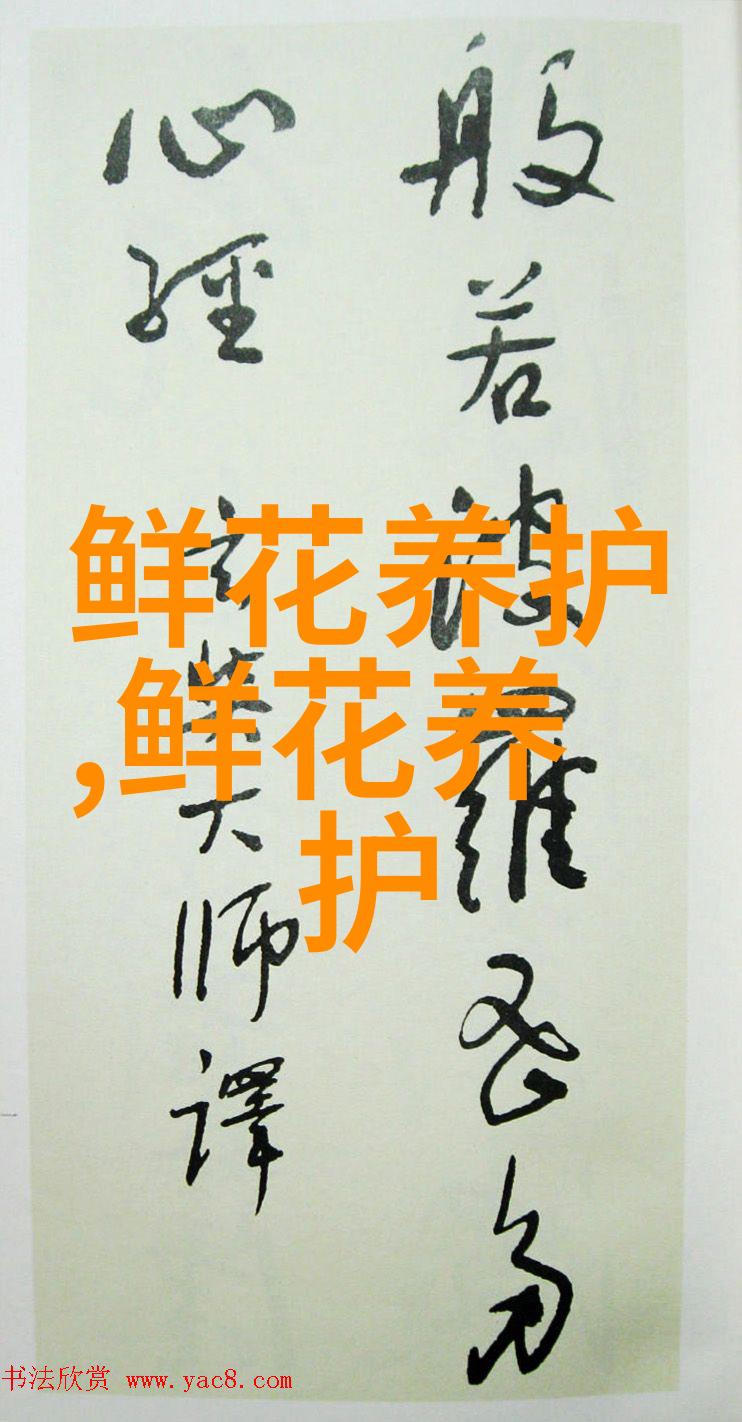 般若波羅密多
心經 玄奘大師譯
鲜花养护
,鲜花养
护
书法欣赏 www.yac8.com